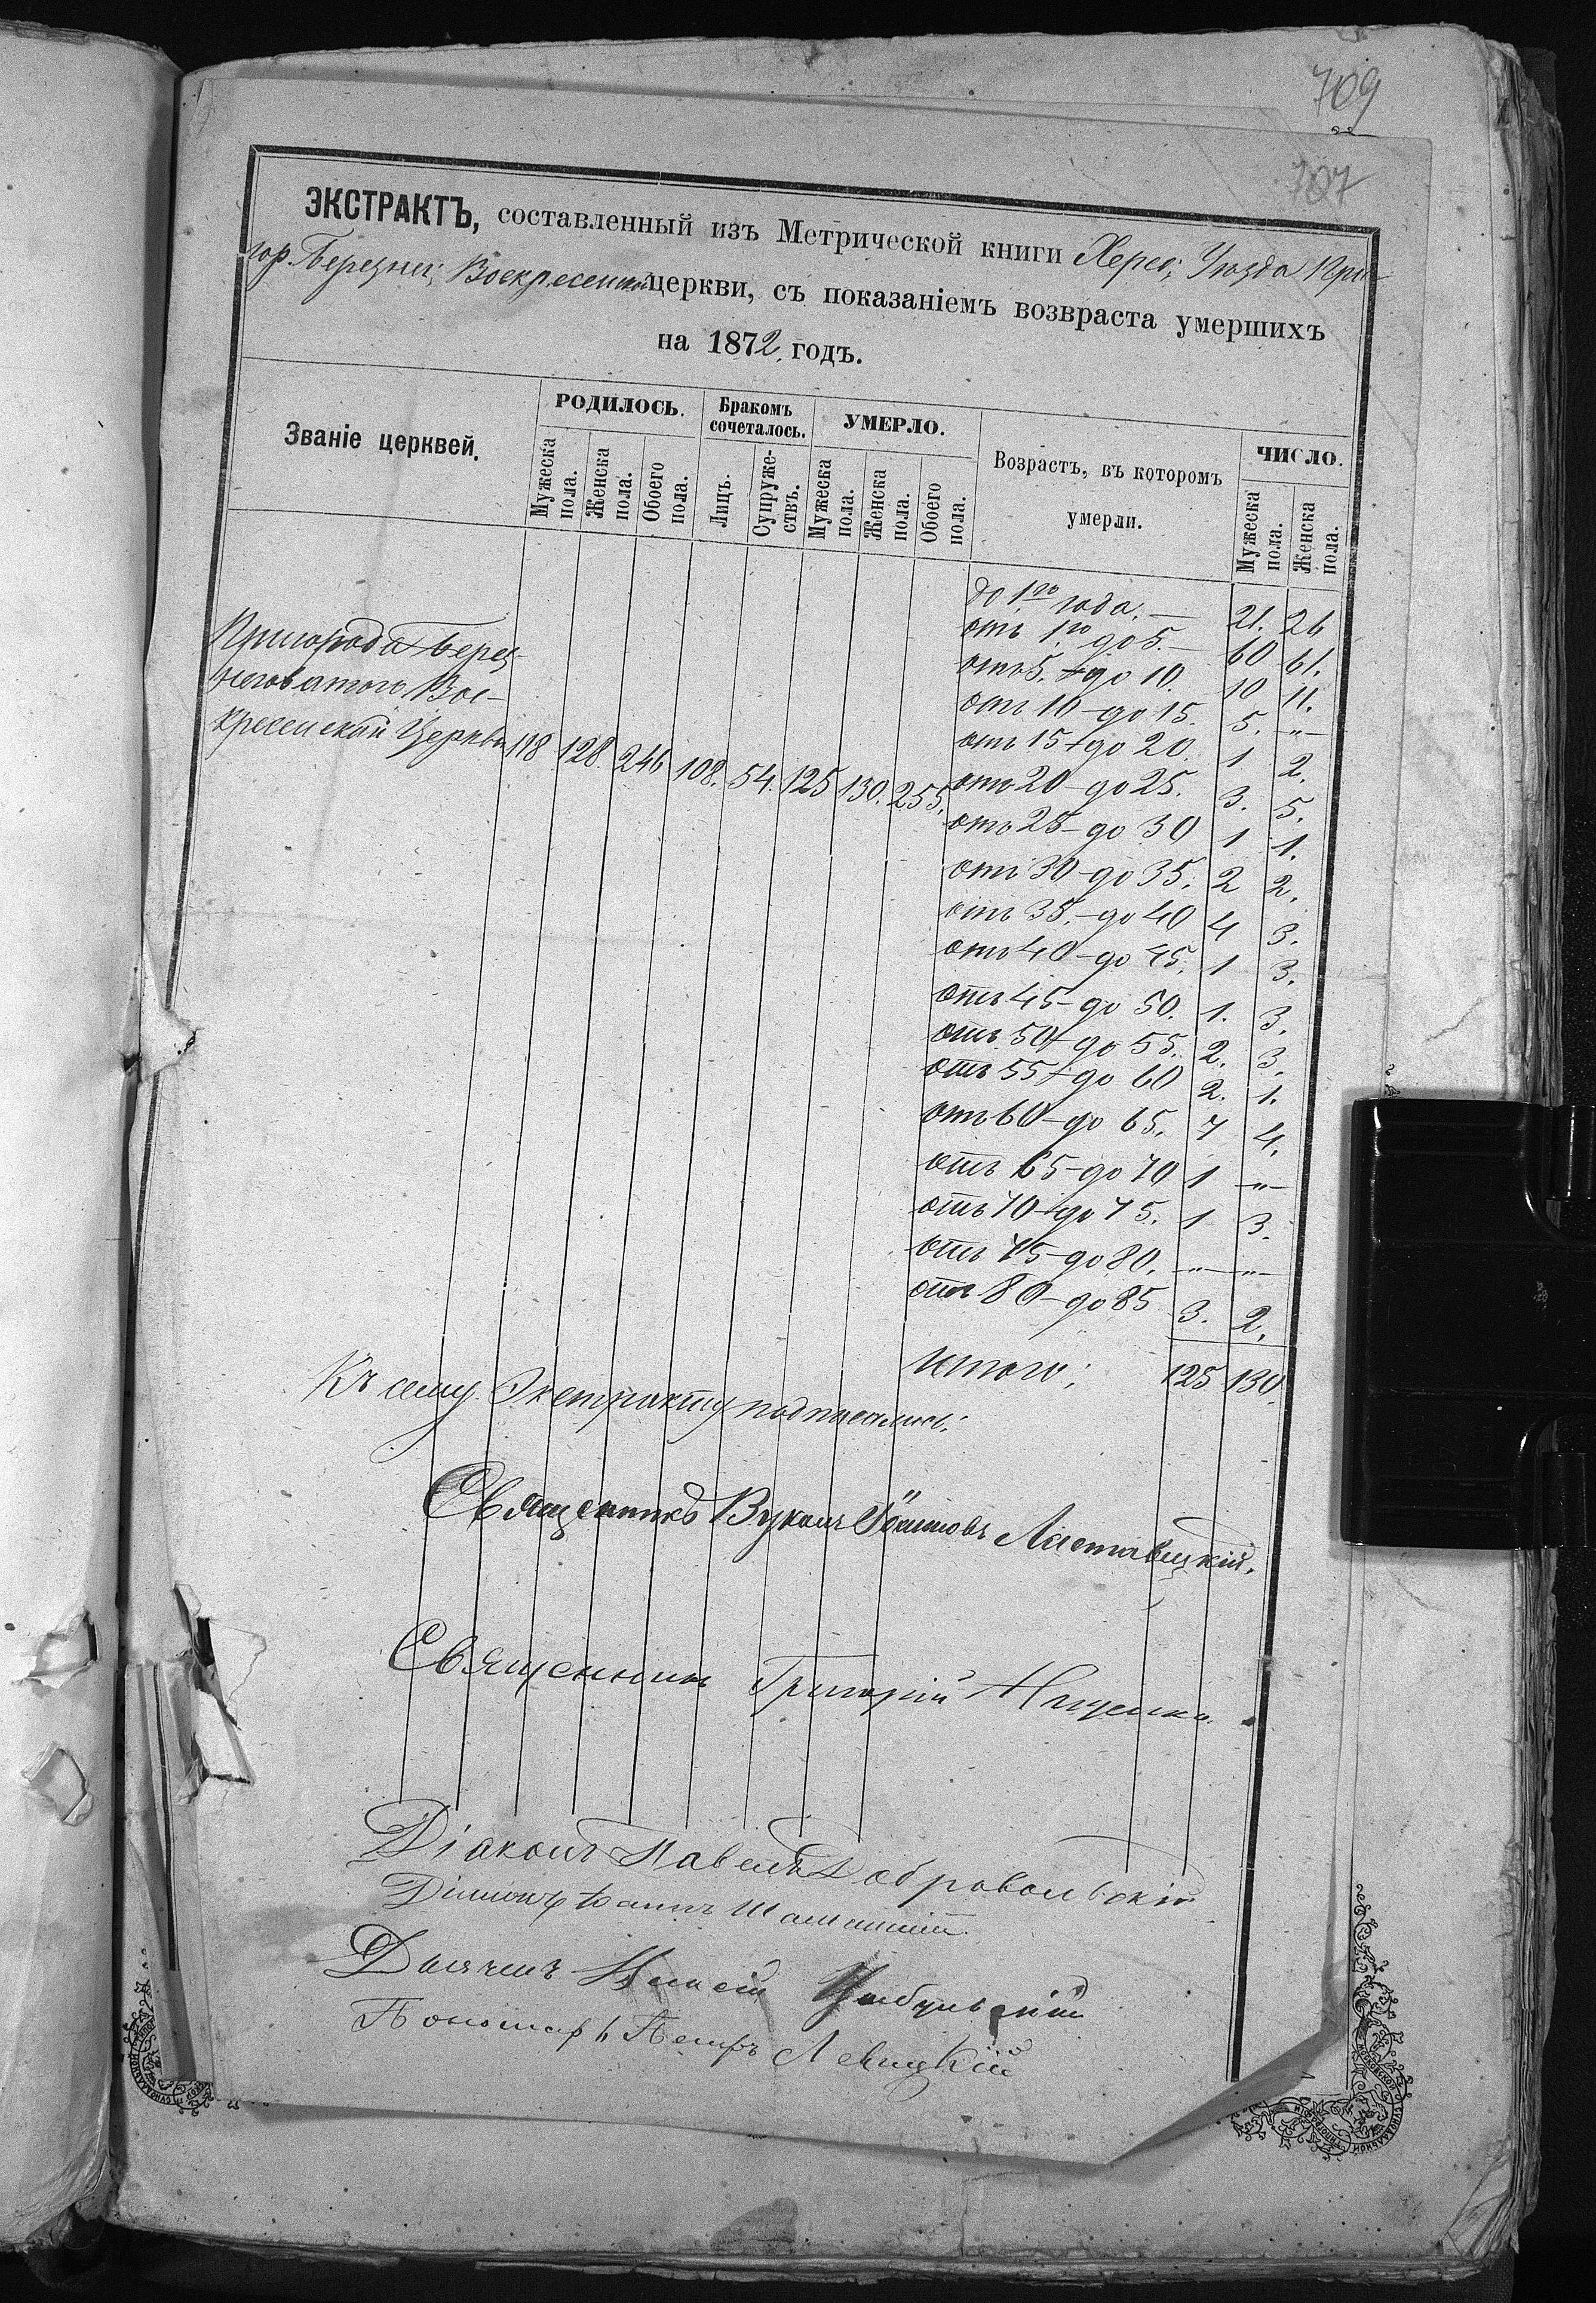 709
707
ЭКСТРАКТЪ, составленный изъ Метрической книги Херсо; Уѣзда При-
гор. Березнег; Воскресенской церкви, съ показаніемъ возвраста умершихъ
на 1872 годъ.
Званіе церквей.
РОДИЛОСЬ.
Бракомъ сочеталось.
УМЕРЛО.
Возрастъ, въ которомъ умерли.
ЧИСЛО.
Мужеска пола.
Женска пола.
Обоего пола.
Лицъ.
Супруже-ствъ.
Мужеска пола.
Женска пола.
Обоего пола.
Мужеска пола.
Женска пола.
Пригорода Берез-
неговатого Вос-
кресенской Церкви 118 128 246 108. 54. 125 130. 255.
до 1го года. — 21. 26
отъ 1го до 5. — 60 61.
отъ 5. до 10. 10 11.
отъ 10 - до 15. 5. „
отъ 15 до 20. 1 2.
отъ 20 - до 25. 3. 5.
отъ 25 - до 30 1 1.
отъ 30 - до 35. 2 2.
отъ 35. - до 40 4 3.
отъ 40 - до 45. 1 3.
отъ 45 - до 50. 1. 3.
отъ 50 до 55. 2. 3.
отъ 55 до 60 2. 1.
отъ 60 - до 65. 7 4.
отъ 65 - до 70 1 „
отъ 70 - до 75. 1 3.
отъ 75 - до 80. „ „
отъ 80 - до 85 3. 2.
Итого; 125 130
Къ сему Экстракту подписались:
Священникъ Вуколъ Іоанновъ Ластовецкій.
Священникъ Григорій Нищенко.
Діаконъ Павелъ Добровольскій
Діаконъ Іоаннъ
Дьячекъ Цыбульскій
Пономарь Петръ Левицкій